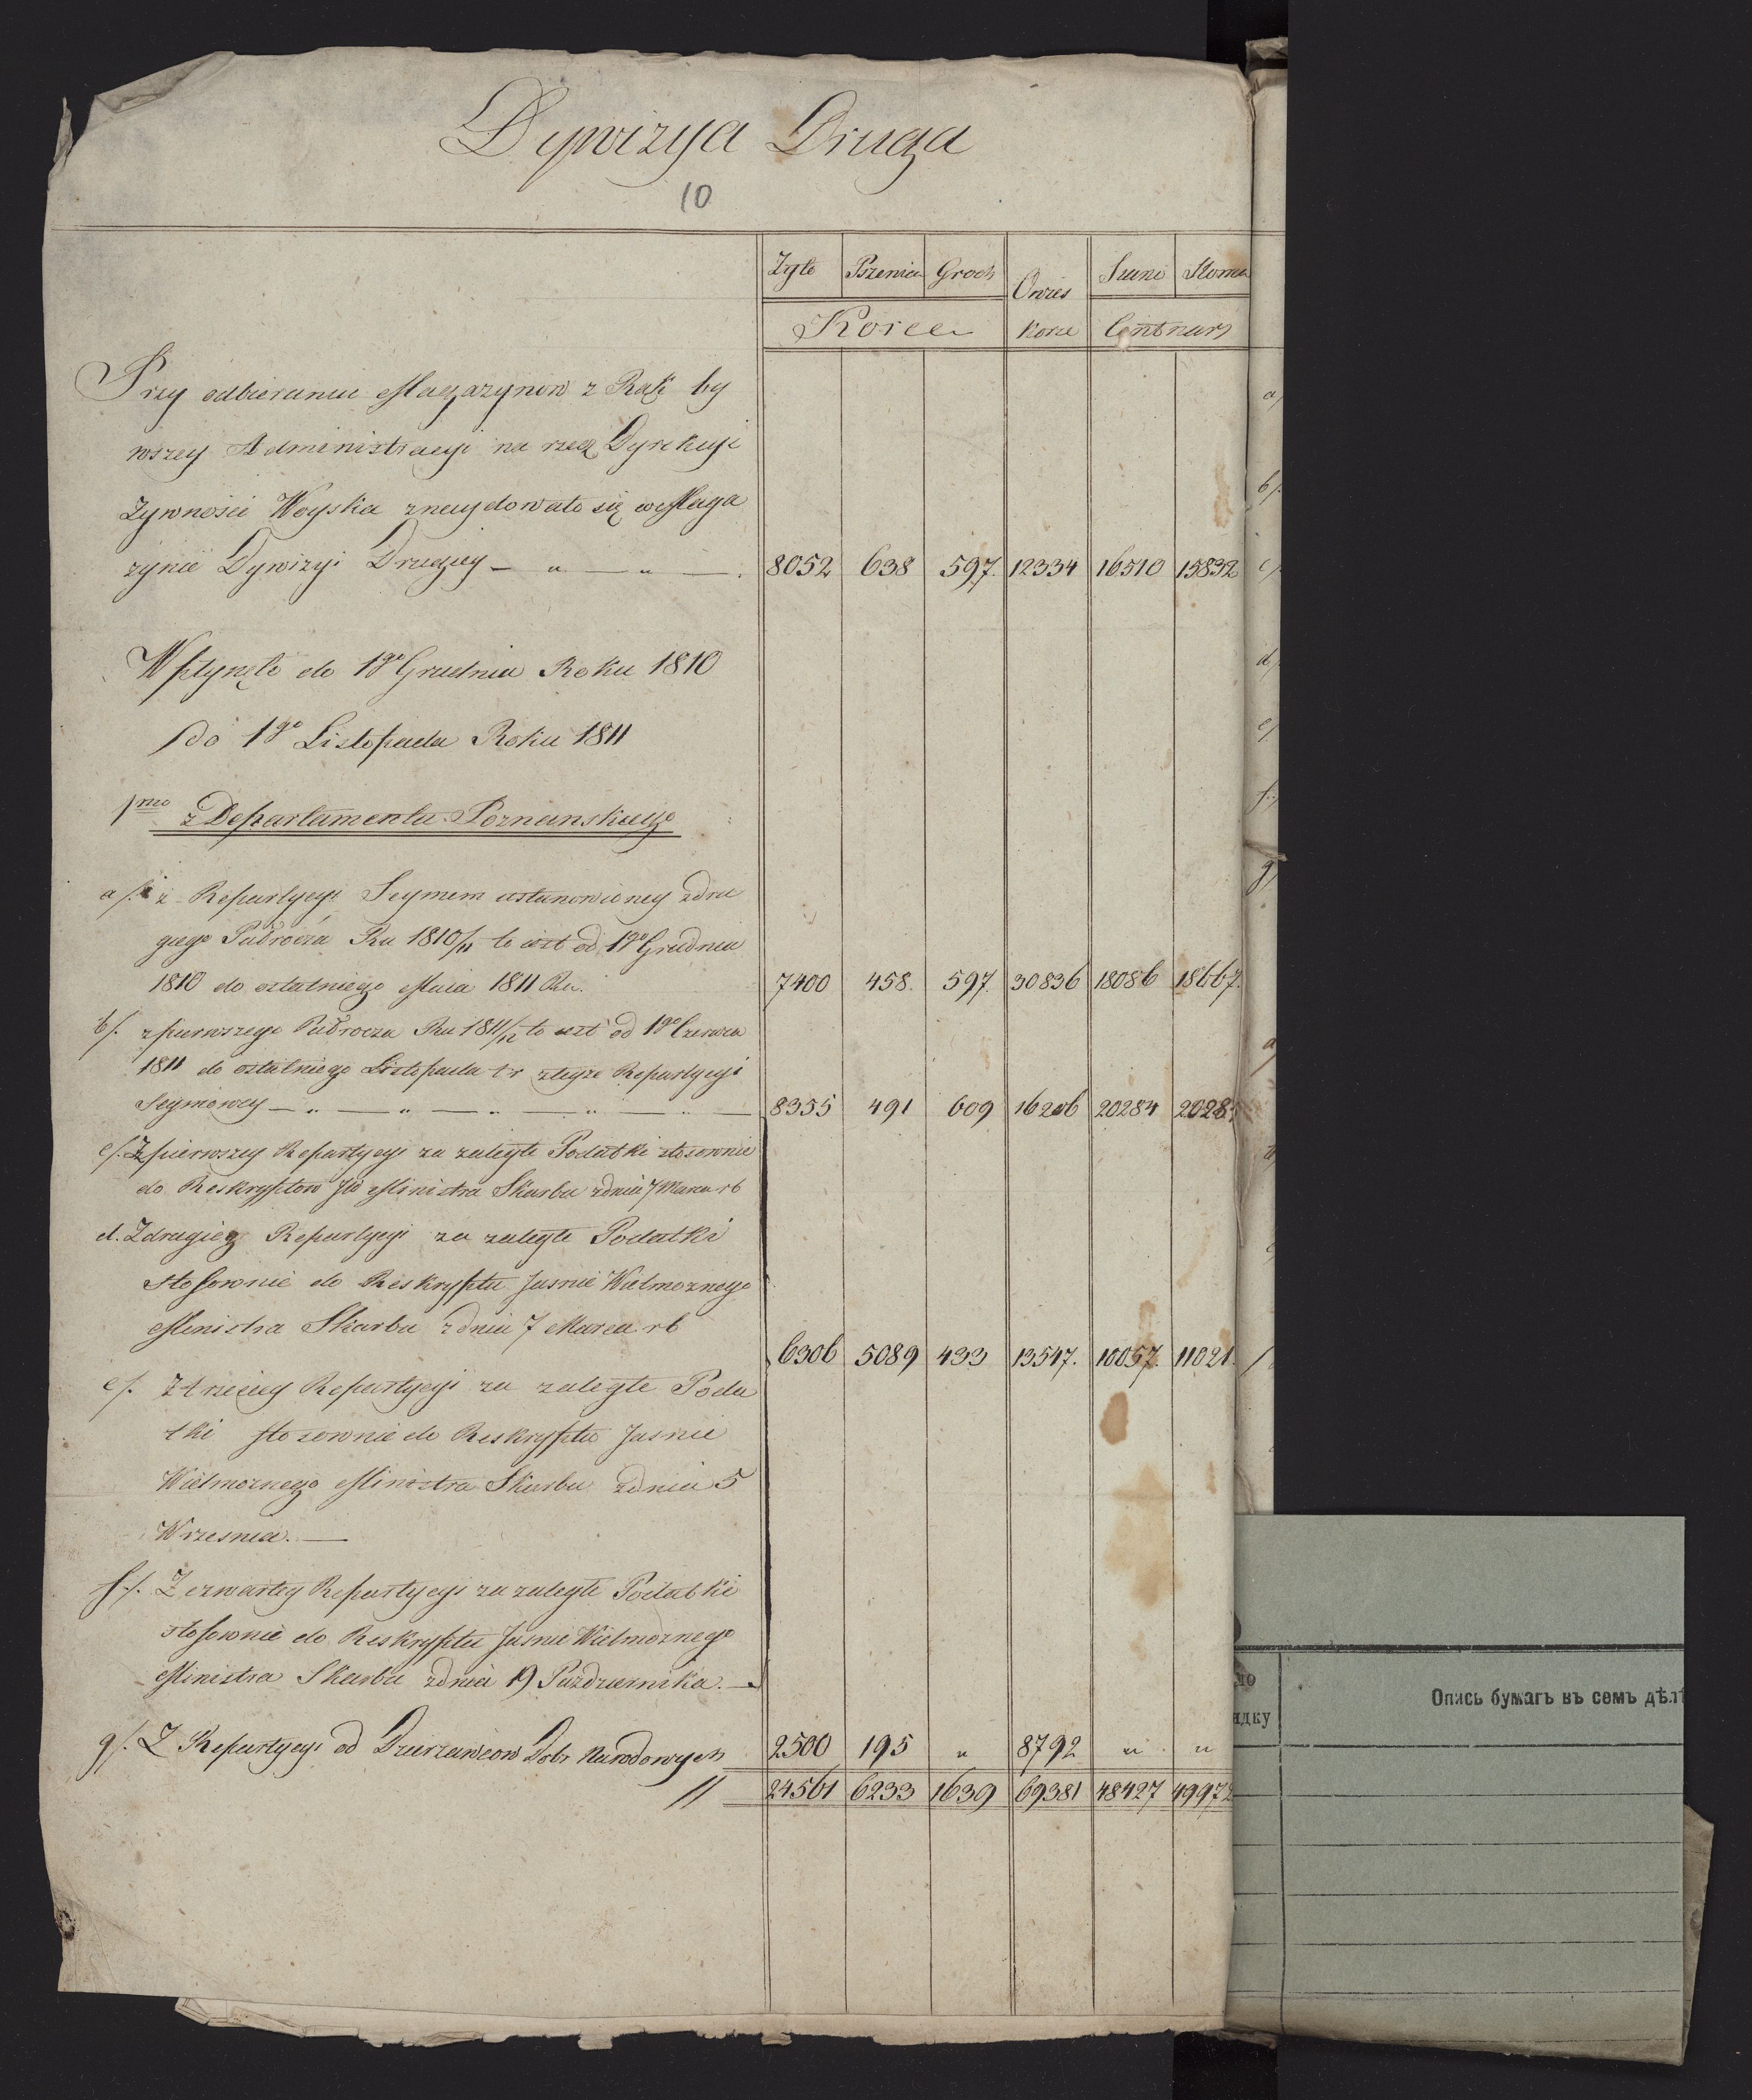 Dywizya Druga
10
Żyto Pszenica Groch Owies Siano Słoma
Korce Korce Centnary
Przy odbieraniu Magazynow z Rąk by
wszey Administracyi na rzecz Dyrekcyi
Żywności Woyska znaydowało się w Maga
zynie Dywizyi Drugiey — „ — „ — 8052 638 597. 12334 16510 15832
Wpłynęło do 1go Grudnia Roku 1810
do 1go Listopada Roku 1811
1mo z Departamentu Poznanskiego
a/. z Repartycyi Seymem ustanowioney zdru
giego Pułrocza Ru 1810/11 to iest od 1go Grudnia
1810 do ostatniego Maia 1811 Ru. 7400 458. 597. 30836 18086 18667.
b/. z pierwszego Pułrocza Ru 1811/12 to iest od 1go Czerwca
1811 do ostatniego Listopada t r zteyże Repartycyi
Seymowey — „ — „ — „ — „ — „ — 8355 491 609 16206 20284 2028
c/. Z pierwszey Repartycyi za zaległe Podatki stosownie
do Reskryptow JW Ministra Skarbu zdnia 7 Marca rb
d. Z drugiey Repartycyi za zaległe Podatki
stosownie do Reskryptu Jasnie Wielmoznego
Ministra Skarbu zdnia 7 Marca rb
6306 5089 433 13547. 10057. 11021.
e/. Z trzeciey Repartycyi za zaległe Poda
tki stosownie do Reskryptu Jasnie
Wielmoznego Ministra Skarbu zdnia 5
Wrzesnia. —
f/. Z czwartey Repartycyi za zaległe Podatki
stosownie do Reskryptu Jasnie Wielmoznego
Ministra Skarbu zdnia 19 Pazdziernika. —
g/. Z Repartycyi od Dzierzawcow Dobr Narodowych 2500 195 „ 8792 „ „
// 24561 6233 1639 69381 48427 4997
a/
b/.
c/.
d/.
e/.
f/.
g/
a/
Опись бумагъ въ семъ дѣл
ядку